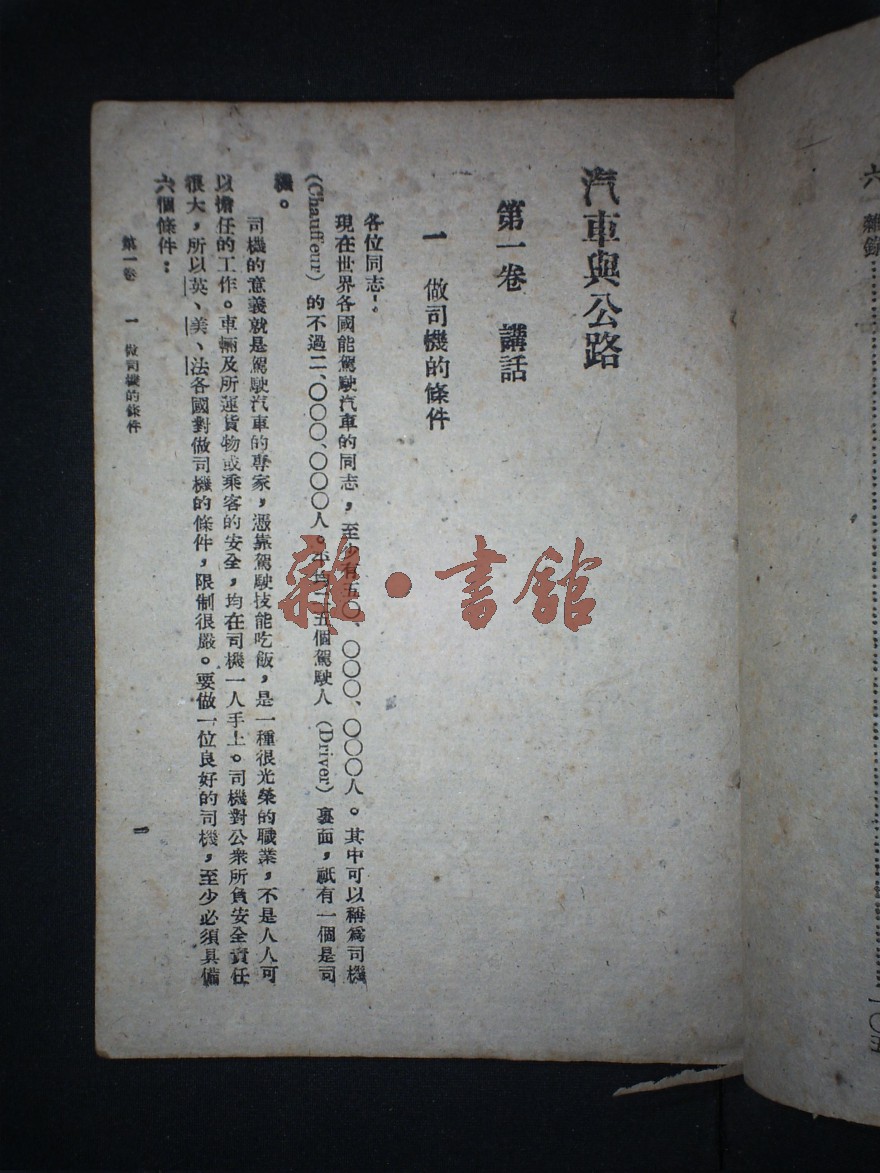 汽車與公路
第一卷　講話
一　做司機的條件
各位同志：
現在世界各國能駕駛汽車的同志，至少有五〇、〇〇〇、〇〇〇人。其中可以稱爲司機
(Chauffeur) 的不過二、〇〇〇、〇〇〇人。五個駕駛人 (Driver) 裏面，祇有一個是司
機。
司機的意義就是駕駛汽車的專家，憑靠駕駛技能吃飯，是一種很光榮的職業，不是人人可
以擔任的工作。車輛及所運貨物或乘客的安全，均在司機一人手上。司機對公衆所負安全責任
很大，所以英、美、法各國對做司機的條件，限制很嚴。要做一位良好的司機，至少必須具備
六個條件：
第一卷　一　做司機的條件
一
六　雜錄
一〇五
雜·書館